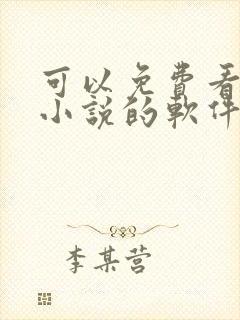 可以免費看
小說的軟件
李某营